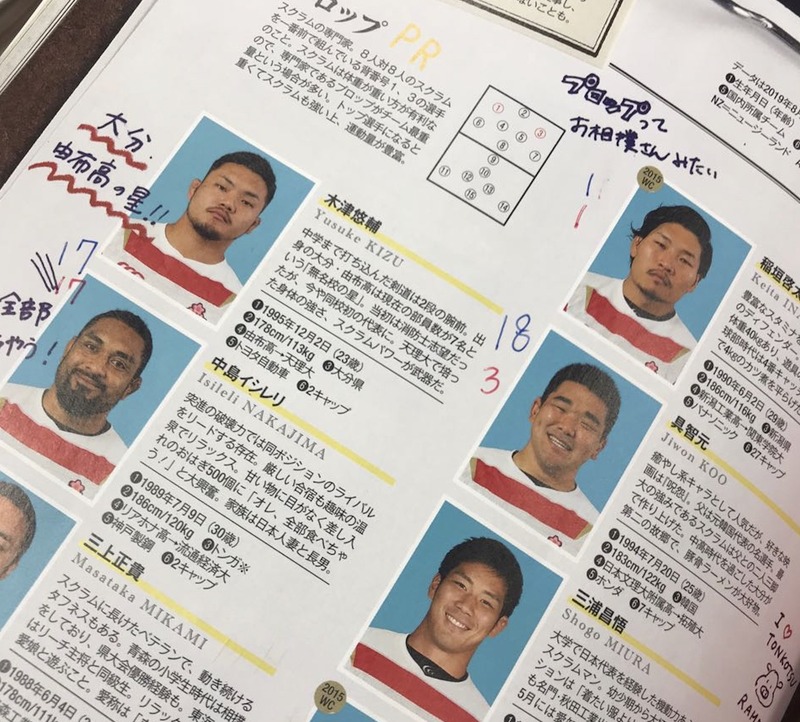 ロップ PR
スクラムの専門家。8人対8人のスクラム
を一番前で組んでいる背番号1、3の選手
のこと。スクラムは体重が重い方が有利な
ので、専門家であるプロップがチーム最重
量という場合が多い。トップ選手になると
重くてスクラムも強い上、運動量が豊富。
ないことも。
データは2019年8
❶生年月日（年齢）
❺国内所属チーム
NZ=ニュージーランド
プロップって
お相撲さんみたい
① ② ③
④ ⑤
⑥ ⑦ ⑧
⑨
⑩
⑪ ⑫ ⑬ ⑭
⑮
大分.
由布高の星!!
木津悠輔
Yusuke KIZU
中学まで打ち込んだ剣道は2段の腕前。出
身の大分・由布高は現在の部員数が7名と
いう「無名校の星」。当初は消防士志望だっ
たが、今や同校初の代表に。天理大で培っ
た身体の強さ、スクラムパワーが武器だ。
❶1995年12月2日（23歳）
❷178cm/113kg ❸大分県
❹由布高→天理大
❺トヨタ自動車 ❻2キャップ
17
17
全部
ちゃう!
中島イシレリ
Isileli NAKAJIMA
突進の破壊力では同ポジションのライバル
をリードする存在。厳しい合宿も趣味の温
泉でリラックス。甘い物に目がなく差し入
れのおはぎ500個に「オレ、全部食べちゃ
う！」と大興奮。家族は日本人妻と長男。
❶1989年7月9日（30歳）
❷186cm/120kg ❸トンガ※
❹リアホナ高→流通経済大
❺神戸製鋼 ❻2キャップ
三上正貴
Masataka MIKAMI
スクラムに長けたベテランで、動き続ける
タフネスもある。青森の小学生時代は相撲
をしており、県大会優勝経験も。東海
はリーチ主将と同級生。リラッ
愛娘と遊ぶこと。愛称は「
❶1988年6月4日
❷178cm/11
1
1
2015
WC
稲垣啓太
Keita INA
豊富なスタミナ
のディフェンダ
体重40kgあり、遊具
球部時代は4番キャッ
で4kgのカツ煮を平らげた
❶1990年6月2日（29歳）
❷186cm/116kg ❸新潟県
❹新潟工業高→関東学院大
❺パナソニック ❻27キャップ
18
3
具智元
Jiwon KOO
癒やし系キャラとして人気だが、好きな映
画は「呪怨」。父は元韓国代表の名選手。最
大の強みであるスクラムは父との二人三脚
で作り上げた。中高時代を過ごした大分が
第二の故郷で、豚骨ラーメンが大好物。
❶1994年7月20日（25歳）
❷183cm/122kg ❸韓国
❹日本文理大附属高→拓殖大
❺ホンダ ❻7キャップ
I ♡
TONKOTSU
RAM
2015
WC
三浦昌悟
Shogo MIURA
大学で日本代表を経験した機動力
スクラムマン。幼少期か
ションは「着たい服
も名門・秋田工
5月には妻